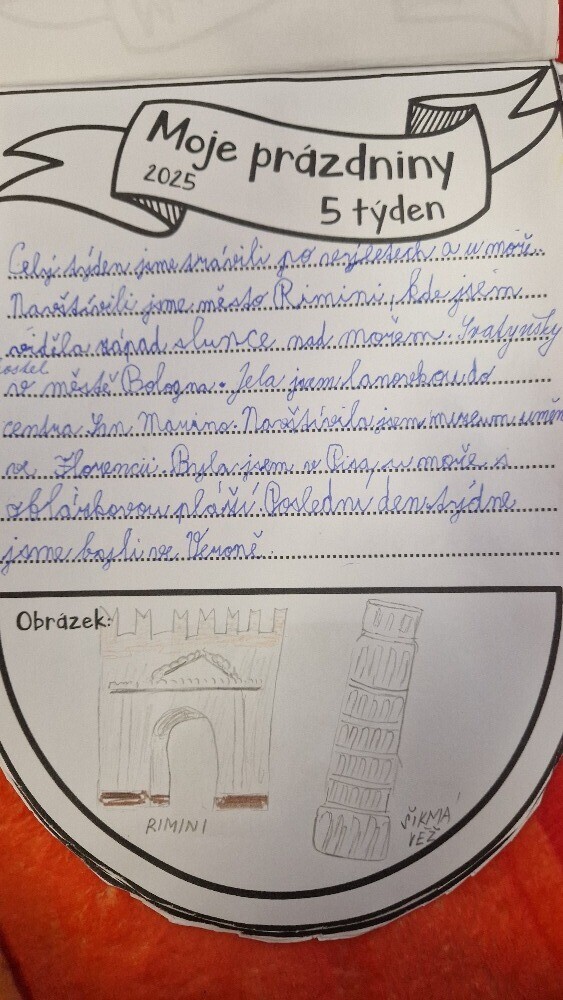 Moje prázdniny
2025
5 týden
Celý týden jsme strávili po výletech a u moře.
Navštívili jsme město Rimini, kde jsem
viděla západ slunce nad mořem.
kostel
v městě Bologna. Jela jsem lanovkou do
centra San Marino. Navštívila jsem muzeum umění
ve Florencii. Byla jsem v Pise, u moře s
oblázkovou pláží. Poslední den týdne
jsme byli ve Veroně.
Obrázek:
RIMINI
ŠIKMÁ
VĚŽ